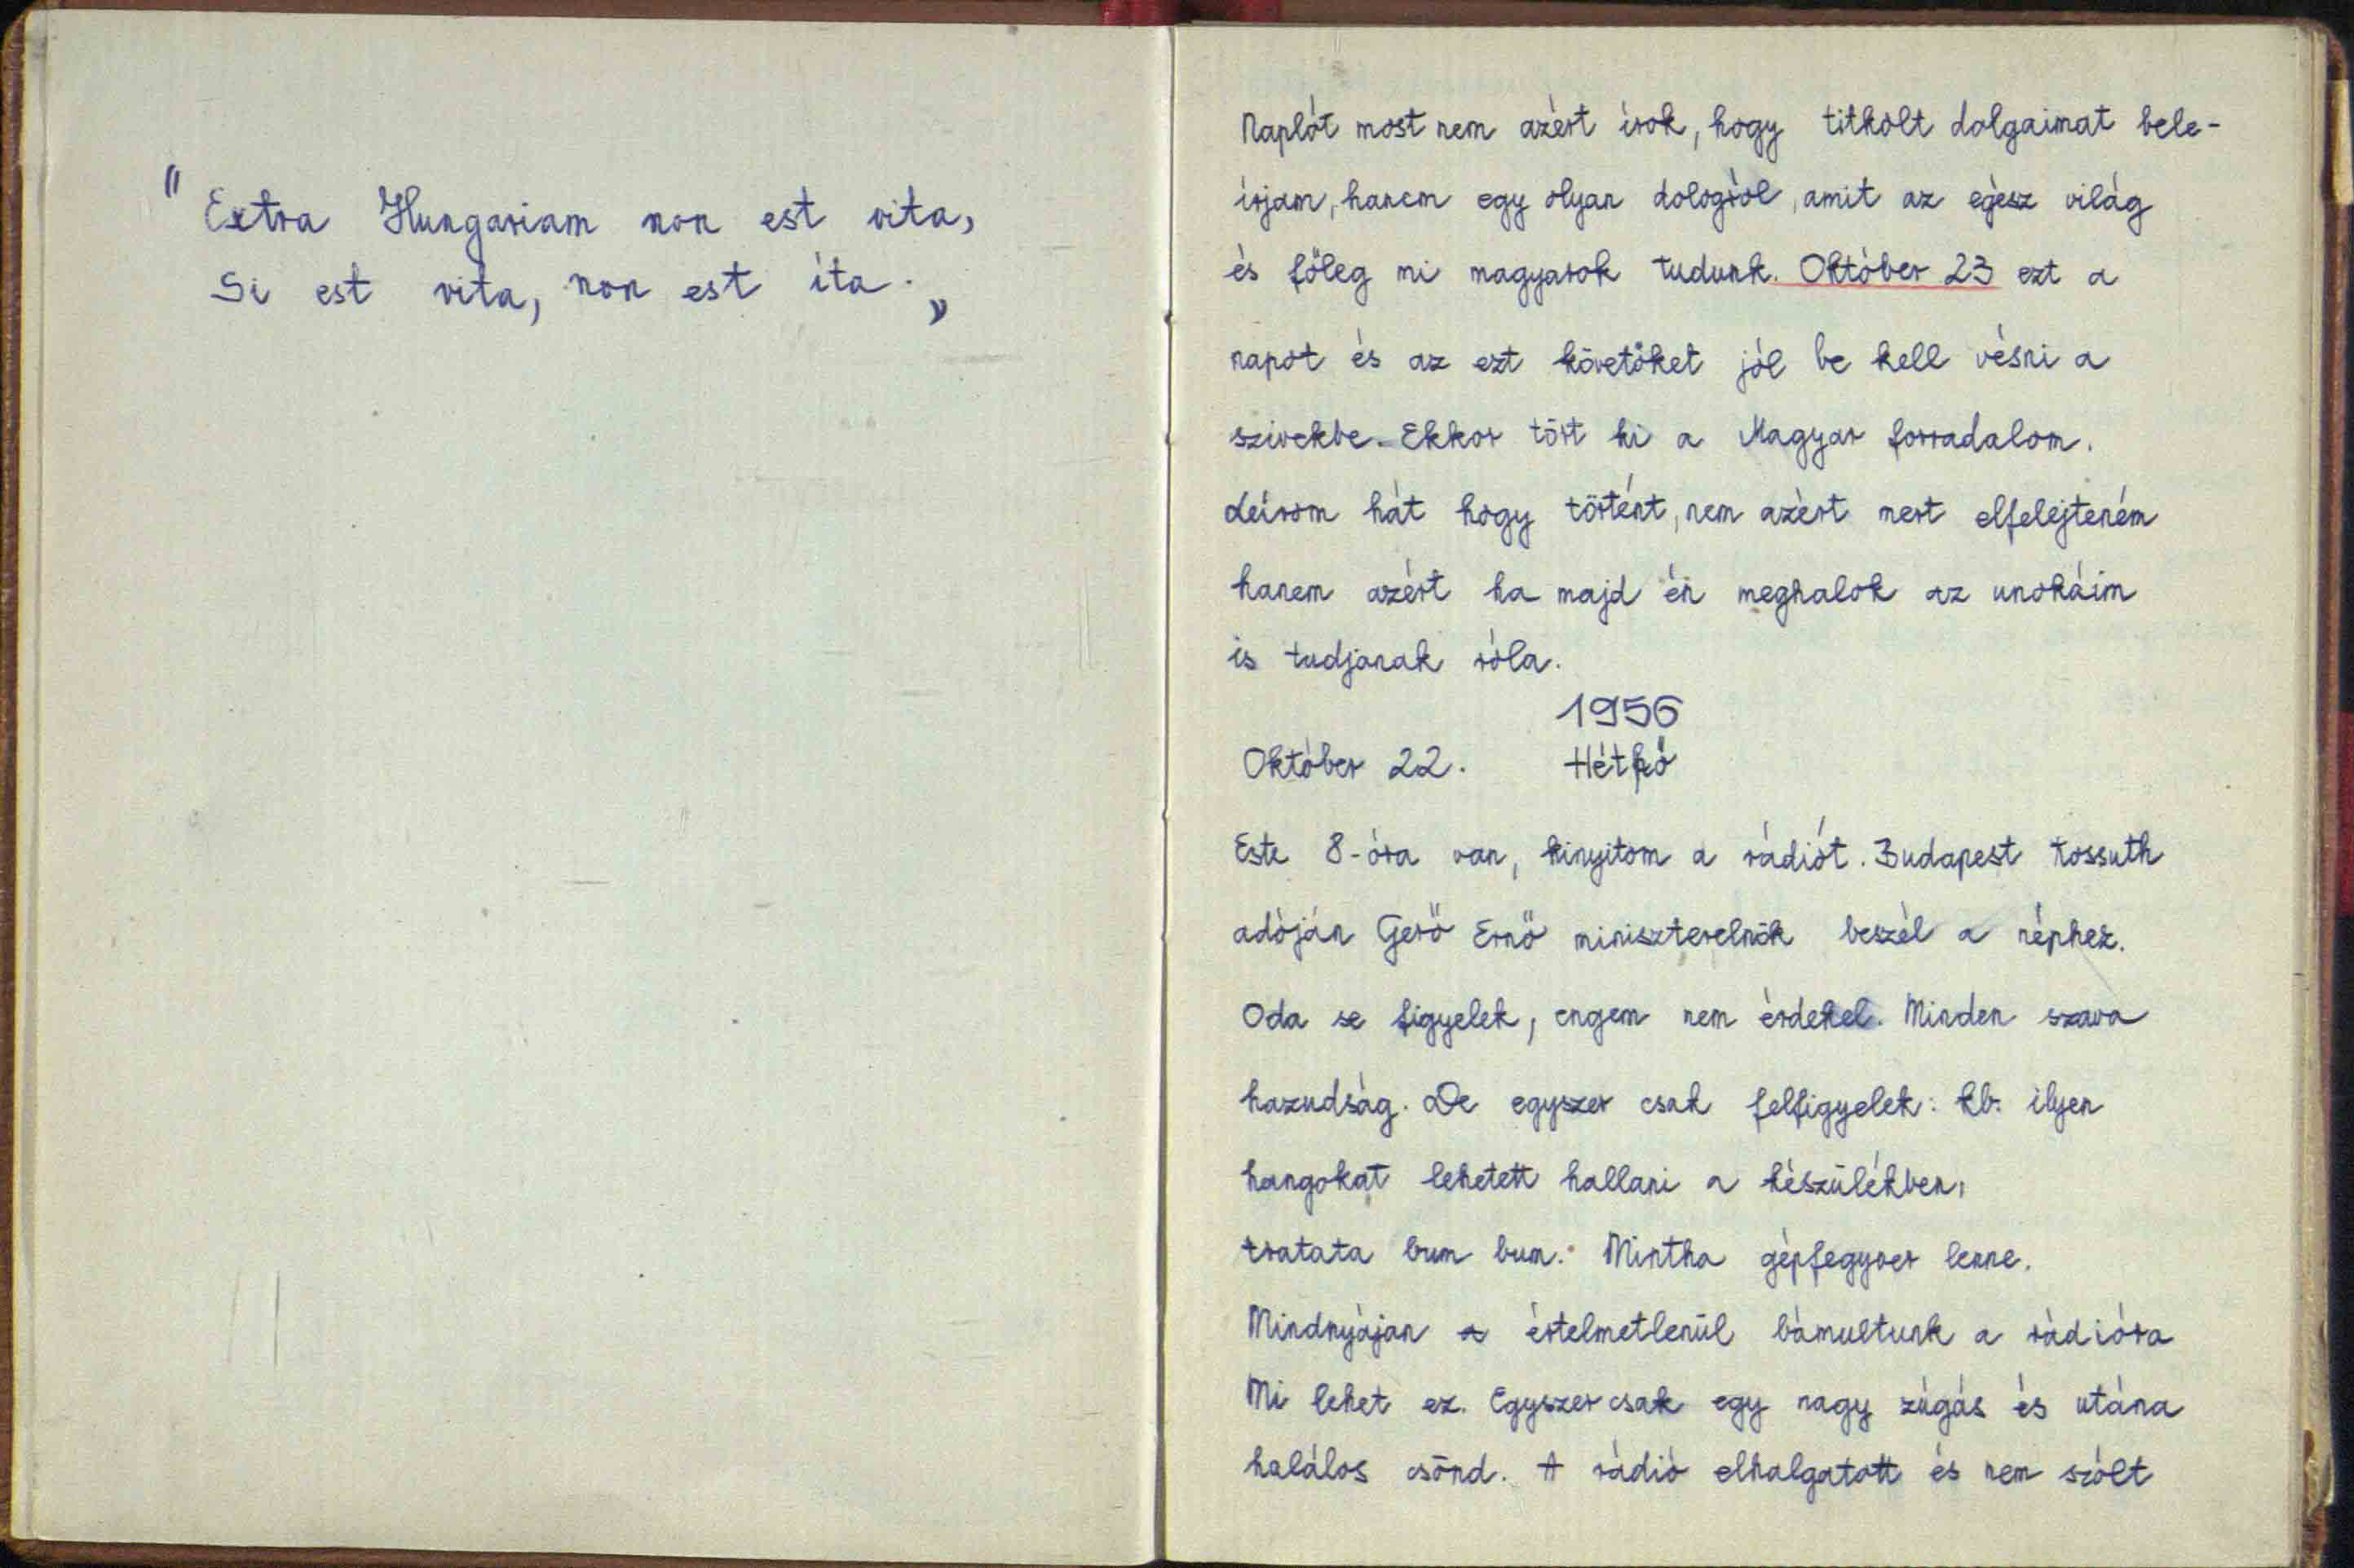 " Extra Hungariam non est vita,
Si est vita, non est ita. „
Naplót most nem azért írok, hogy titkolt dolgaimat bele-
írjam, hanem egy olyan dologról, amit az egész világ
és főleg mi magyarok tudunk. Október 23 ezt a
napot és az ezt követőket jól be kell vésni a
szivekbe. Ekkor tört ki a Magyar forradalom.
Leírom hát hogy történt, nem azért mert elfelejteném
hanem azért ha majd én meghalok az unokáim
is tudjanak róla.
1956
Október 22. Hétfő
Este 8-óra van, kinyitom a rádiót. Budapest Kossuth
adóján Gerő Ernő miniszterelnök beszél a néphez.
Oda se figyelek, engem nem érdekel. Minden szava
hazudság. De egyszer csak felfigyelek: kb. ilyen
hangokat lehetett hallani a készülékben,
tratata bum bum. Mintha gépfegyver lenne.
Mindnyájan a értelmetlenül bámultunk a rádióra
Mi lehet ez. Egyszer csak egy nagy zúgás és utána
halálos csönd. A rádió elhalgatott és nem szólt